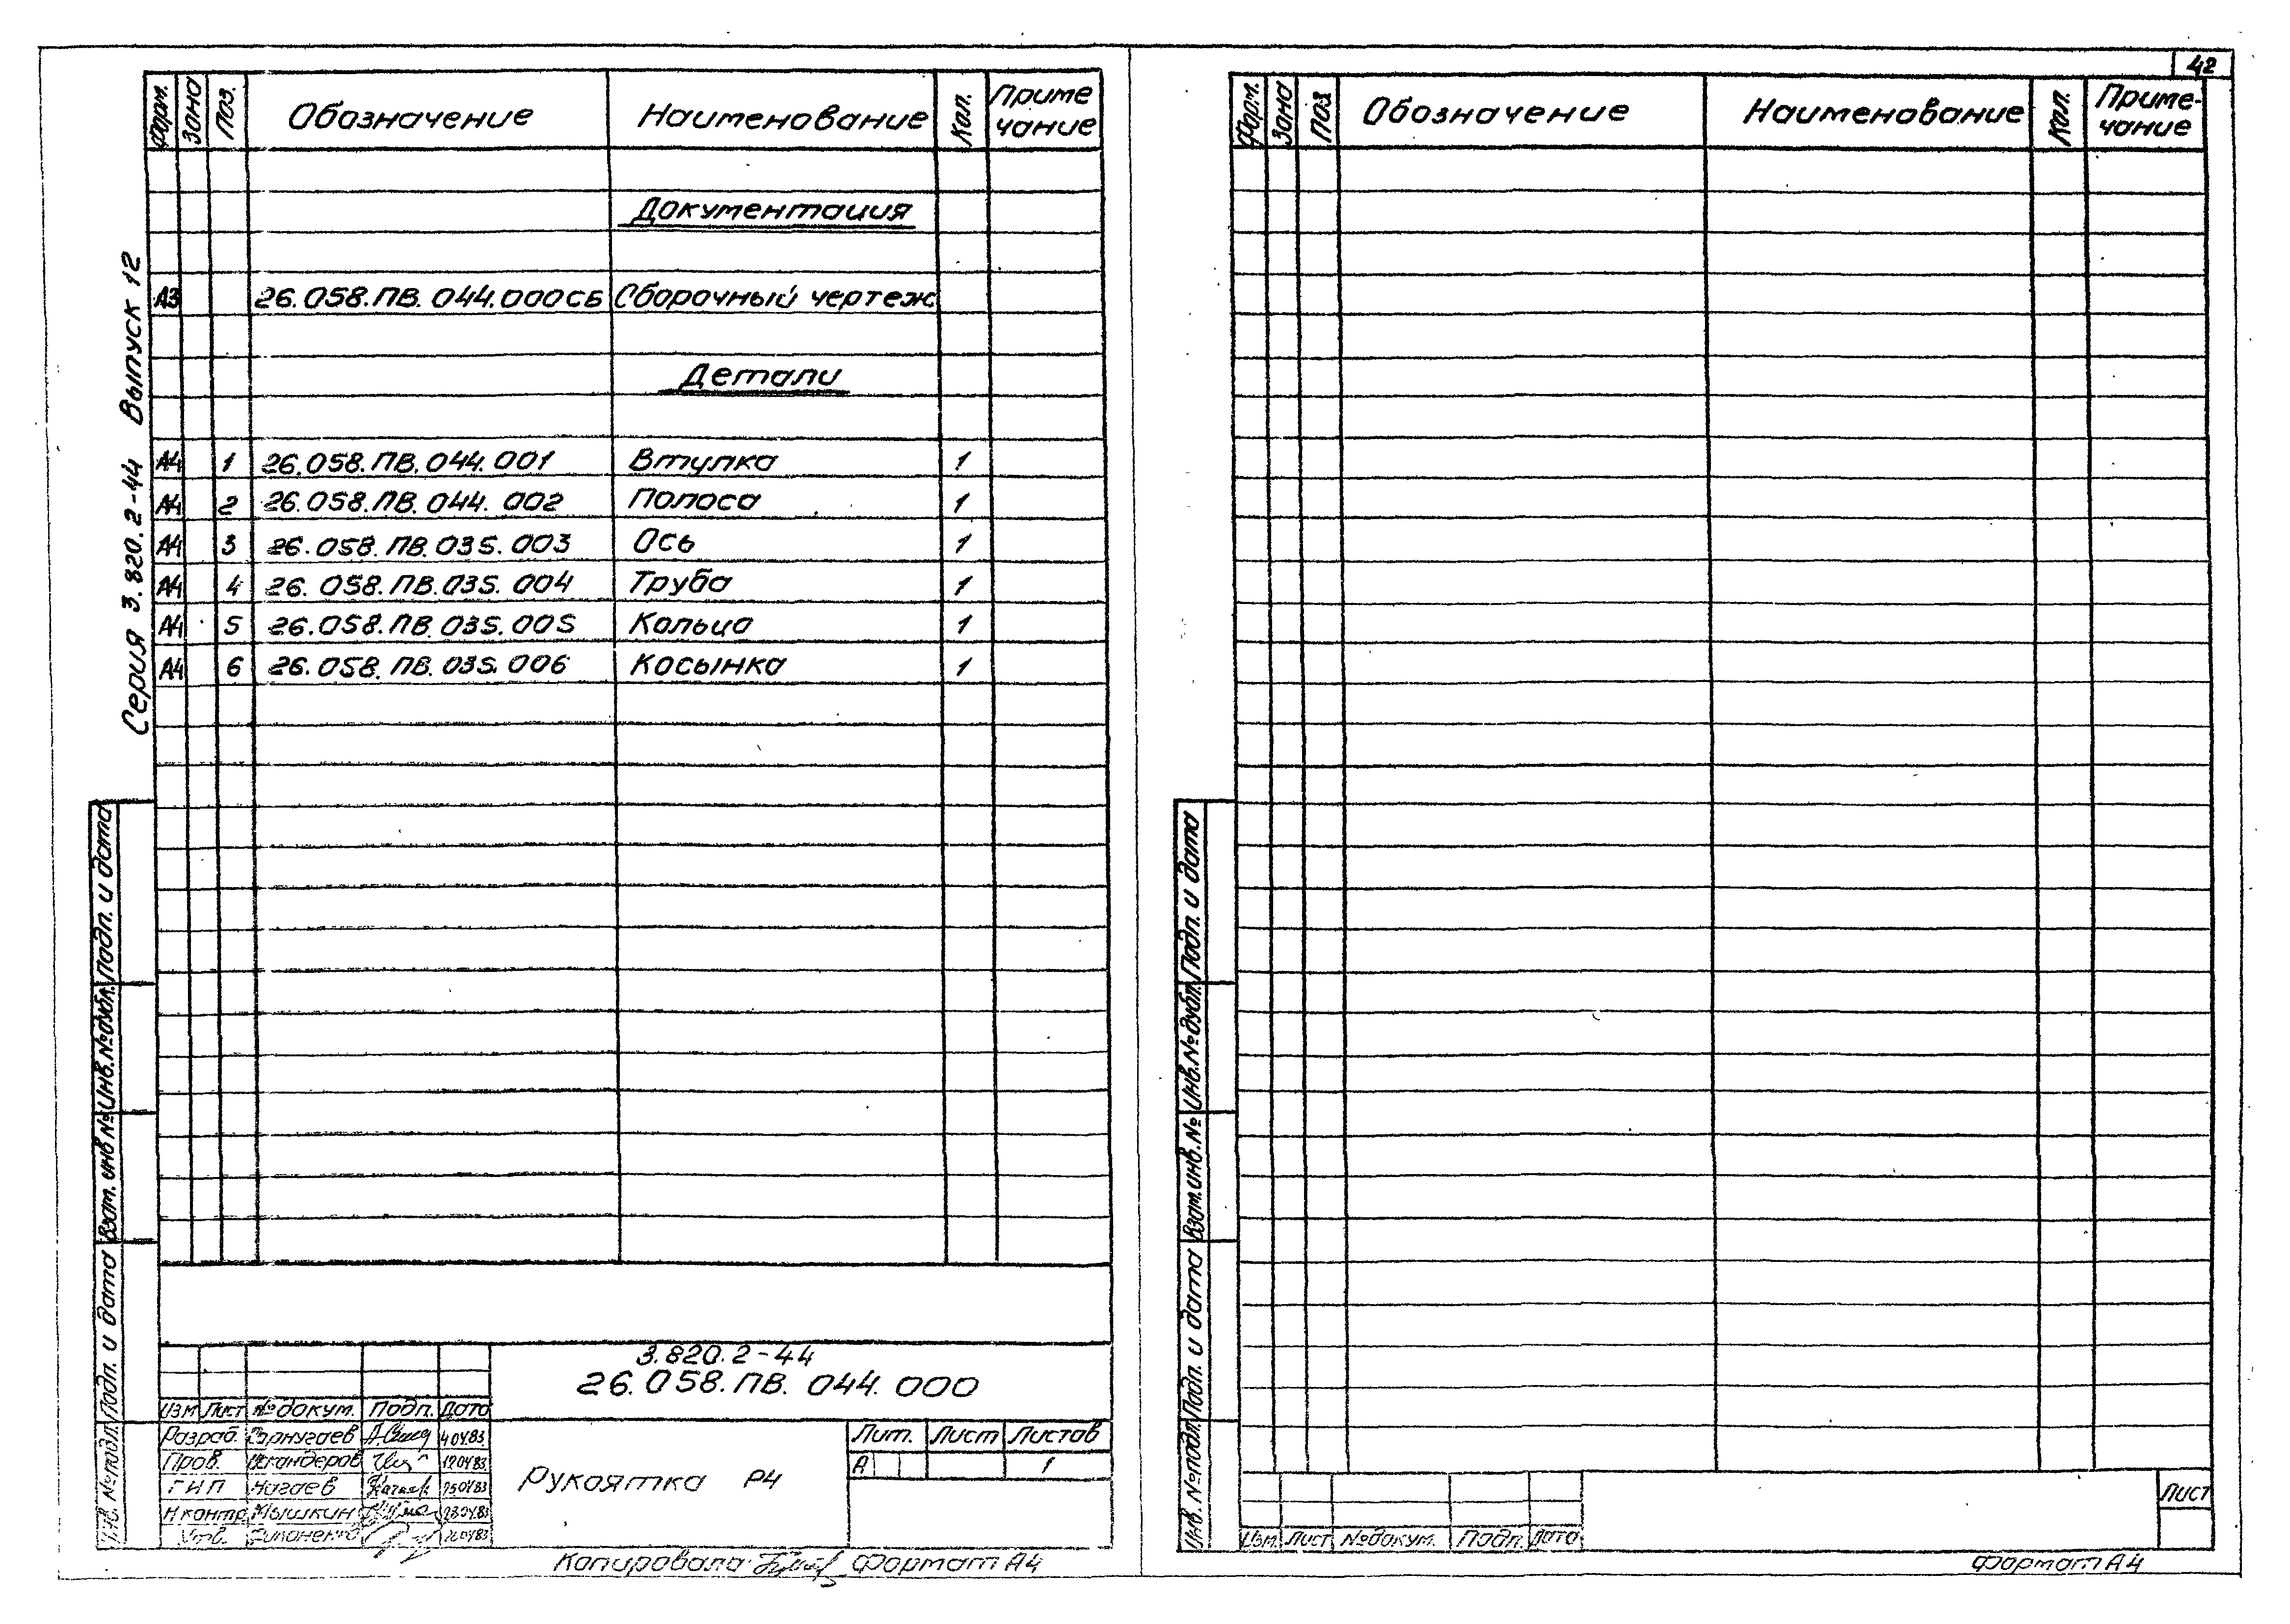 42
Серия 3.820.2-44 Выпуск 12
Форм. Зона Поз. Обозначение Наименование Кол. Приме чание
Документация
А3 26.058.ПВ.044.000СБ Сборочный чертеж
Детали
А4 1 26.058.ПВ.044.001 Втулка 1
А4 2 26.058.ПВ.044.002 Полоса 1
А4 3 26.058.ПВ.035.003 Ось 1
А4 4 26.058.ПВ.035.004 Труба 1
А4 5 26.058.ПВ.035.005 Кольцо 1
А4 6 26.058.ПВ.035.006 Косынка 1
Подп. и дата
Инв.№дубл.
Взам. инв №
Подп. и дата
Инв. №подл.
3.820.2-44
26.058.ПВ.044.000
Изм Лист №докум. Подп. Дата
Разраб. 4.04.83
Пров. 19.04.83
ГИП Нагаев 25.04.83
Н контр. Мышкин
Утв.
Рукоятка Р4
Лит. Лист Листов
А 1
Копировала: Формат А4
Форм. Зона Поз Обозначение Наименование Кол. Приме-чание
Подп. и дата
Инв.№дубл.
Взам.инв.№
Подп. и дата
Инв. №подл.
Изм. Лист №докум. Подп. Дата
Лист
Формат А4